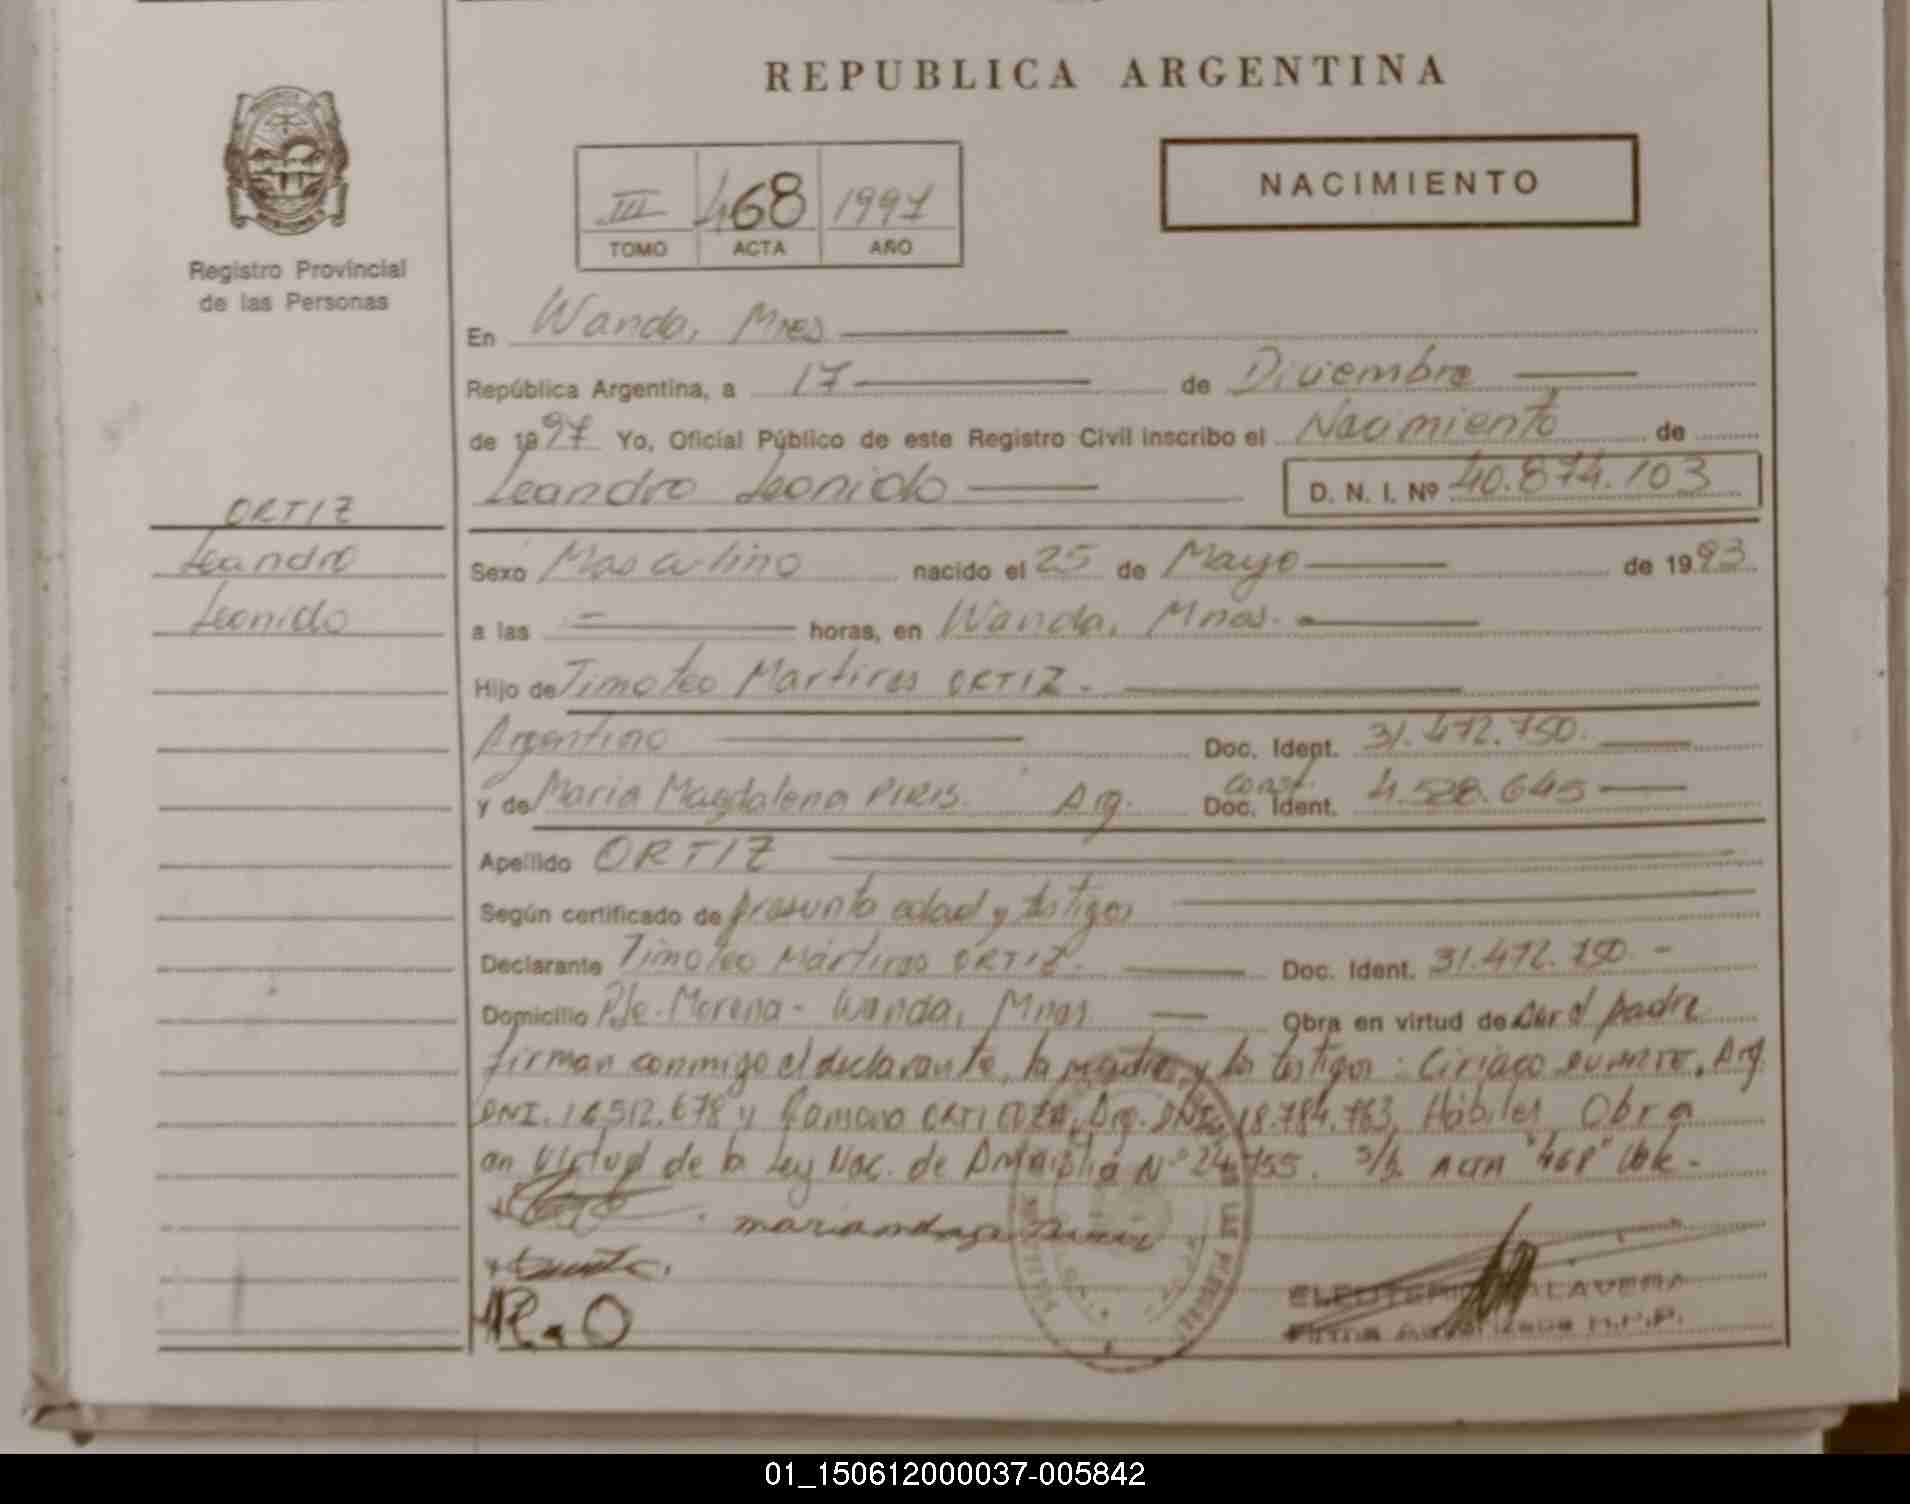 REPUBLICA ARGENTINA
NACIMIENTO
III 468 1997
TOMO ACTA AÑO
Registro Provincial
de las Personas
En Wanda, Mnes
República Argentina, a 17 de Diciembre
de 1997 Yo, Oficial Público de este Registro Civil inscribo el Nacimiento de
Leandro Leonido D. N. I. Nº 40.874.103
ORTIZ
Leandro
Leonido
Sexo Masculino nacido el 25 de Mayo de 1993
a las — horas, en Wanda, Mnes.
Hijo de Timoteo Martires ORTIZ.
Argentino Doc. Ident. 31.472.750.
y de Maria Magdalena PIRIS. Arg. Const. Doc. Ident. 4.528.645
Apellido ORTIZ
Según certificado de presunta edad y testigos
Declarante Timoteo Mártires ORTIZ. Doc. Ident. 31.472.750. -
Domicilio Pje. Morena - Wanda, Mnes Obra en virtud de ser el padre
firman conmigo el declarante, la madre y los testigos: Ciriaco DUARTE, Arg.
DNI. 16.512.678 y Ramona Arg. DNI. 18.784.763, Hábiles. Obra
en virtud de la Ley Nac. de Amnistía Nº 24.755. S/R ACTA "468" Vale.-
R.O
ELEUTERIO TALAVERA
Firma Autorizada R.P.P.
01_150612000037-005842